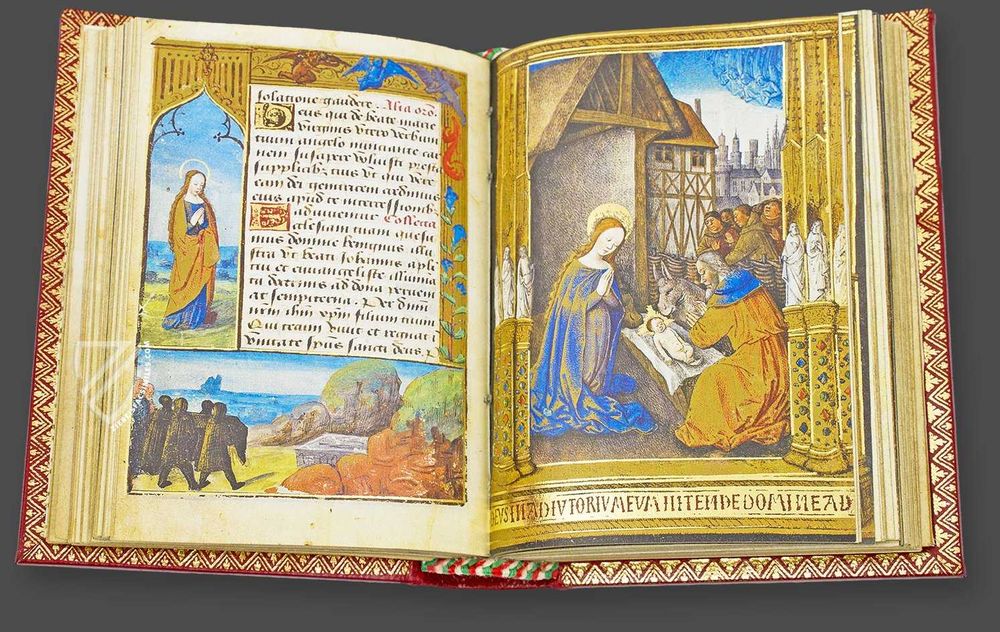 solatione gaudere. Alia oro
Deus qui de beate marie
virginis utero verbum
tuum angelo nunciante car
nem suscipere voluisti presta
supplicibꝫ tuis ut qui vere
eam dei genitricem credimus
eius apud te intercessionibꝫ
adiuvemur Collecta
Ecclesiam tuam quesu
mus domine benignus illu
stra ut beati Johannis apłi
tui et euuangeliste illumina
ta doctrinis ad dona perveni
at sempiterna. Per dñm
nrm ihm xpm filium tuum
Qui tecum vivit et regnat i
unitate spūs sancti deus. p
DEVS IN ADIVTORIVM EVM INTENDE DOMINE AD